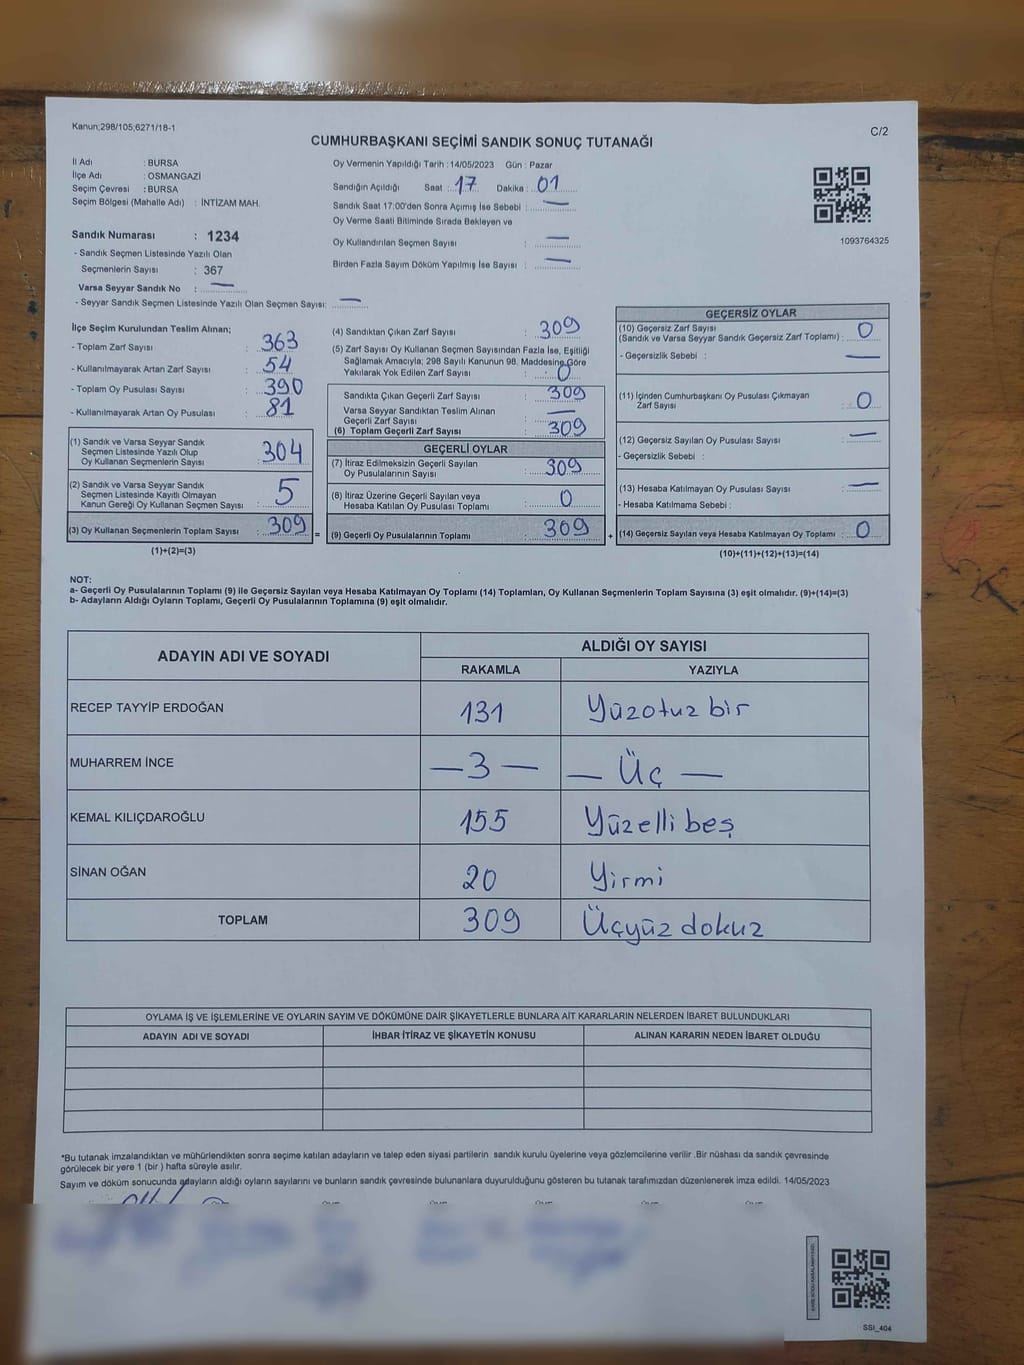 Kanun;298/105;6271/18-1
C/2
CUMHURBAŞKANI SEÇİMİ SANDIK SONUÇ TUTANAĞI
İl Adı : BURSA
İlçe Adı : OSMANGAZİ
Seçim Çevresi : BURSA
Seçim Bölgesi (Mahalle Adı) : İNTİZAM MAH.
Sandık Numarası : 1234
- Sandık Seçmen Listesinde Yazılı Olan
Seçmenlerin Sayısı : 367
Varsa Seyyar Sandık No : —
- Seyyar Sandık Seçmen Listesinde Yazılı Olan Seçmen Sayısı: —
Oy Vermenin Yapıldığı Tarih :14/05/2023 Gün : Pazar
Sandığın Açıldığı Saat : 17 Dakika : 01
Sandık Saat 17:00'den Sonra Açımış İse Sebebi : —
Oy Verme Saati Bitiminde Sırada Bekleyen ve
Oy Kullandırılan Seçmen Sayısı : —
Birden Fazla Sayım Döküm Yapılmış İse Sayısı : —
1093764325
İlçe Seçim Kurulundan Teslim Alınan;
- Toplam Zarf Sayısı : 363
- Kullanılmayarak Artan Zarf Sayısı : 54
- Toplam Oy Pusulası Sayısı : 390
- Kullanılmayarak Artan Oy Pusulası : 81
(1) Sandık ve Varsa Seyyar Sandık
Seçmen Listesinde Yazılı Olup
Oy Kullanan Seçmenlerin Sayısı : 304
(2) Sandık ve Varsa Seyyar Sandık
Seçmen Listesinde Kayıtlı Olmayan
Kanun Gereği Oy Kullanan Seçmen Sayısı : 5
(3) Oy Kullanan Seçmenlerin Toplam Sayısı : 309 =
(1)+(2)=(3)
(4) Sandıktan Çıkan Zarf Sayısı : 309
(5) Zarf Sayısı Oy Kullanan Seçmen Sayısından Fazla İse, Eşitliği
Sağlamak Amacıyla, 298 Sayılı Kanunun 98. Maddesine Göre
Yakılarak Yok Edilen Zarf Sayısı : 0
Sandıkta Çıkan Geçerli Zarf Sayısı : 309
Varsa Seyyar Sandıktan Teslim Alınan
Geçerli Zarf Sayısı : —
(6) Toplam Geçerli Zarf Sayısı : 309
GEÇERLİ OYLAR
(7) İtiraz Edilmeksizin Geçerli Sayılan
Oy Pusulalarının Sayısı : 309
(8) İtiraz Üzerine Geçerli Sayılan veya
Hesaba Katılan Oy Pusulası Toplamı : 0
(9) Geçerli Oy Pusulalarının Toplamı : 309 +
GEÇERSİZ OYLAR
(10) Geçersiz Zarf Sayısı
(Sandık ve Varsa Seyyar Sandık Geçersiz Zarf Toplamı) : 0
- Geçersizlik Sebebi : —
(11) İçinden Cumhurbaşkanı Oy Pusulası Çıkmayan
Zarf Sayısı : 0
(12) Geçersiz Sayılan Oy Pusulası Sayısı : —
- Geçersizlik Sebebi :
(13) Hesaba Katılmayan Oy Pusulası Sayısı : —
- Hesaba Katılmama Sebebi :
(14) Geçersiz Sayılan veya Hesaba Katılmayan Oy Toplamı : 0
(10)+(11)+(12)+(13)=(14)
NOT:
a- Geçerli Oy Pusulalarının Toplamı (9) ile Geçersiz Sayılan veya Hesaba Katılmayan Oy Toplamı (14) Toplamları, Oy Kullanan Seçmenlerin Toplam Sayısına (3) eşit olmalıdır. (9)+(14)=(3)
b- Adayların Aldığı Oyların Toplamı, Geçerli Oy Pusulalarının Toplamına (9) eşit olmalıdır.
ADAYIN ADI VE SOYADI ALDIĞI OY SAYISI
RAKAMLA YAZIYLA
RECEP TAYYİP ERDOĞAN 131 Yüzotuz bir
MUHARREM İNCE —3— — Üç —
KEMAL KILIÇDAROĞLU 155 Yüzelli beş
SİNAN OĞAN 20 Yirmi
TOPLAM 309 Üçyüz dokuz
OYLAMA İŞ VE İŞLEMLERİNE VE OYLARIN SAYIM VE DÖKÜMÜNE DAİR ŞİKAYETLERLE BUNLARA AİT KARARLARIN NELERDEN İBARET BULUNDUKLARI
ADAYIN ADI VE SOYADI İHBAR İTİRAZ VE ŞİKAYETİN KONUSU ALINAN KARARIN NEDEN İBARET OLDUĞU
*Bu tutanak imzalandıktan ve mühürlendikten sonra seçime katılan adayların ve talep eden siyasi partilerin sandık kurulu üyelerine veya gözlemcilerine verilir .Bir nüshası da sandık çevresinde
görülecek bir yere 1 (bir ) hafta süreyle asılır.
Sayım ve döküm sonucunda adayların aldığı oyların sayılarını ve bunların sandık çevresinde bulunanlara duyurulduğunu gösteren bu tutanak tarafımızdan düzenlenerek imza edildi. 14/05/2023
SSI_404